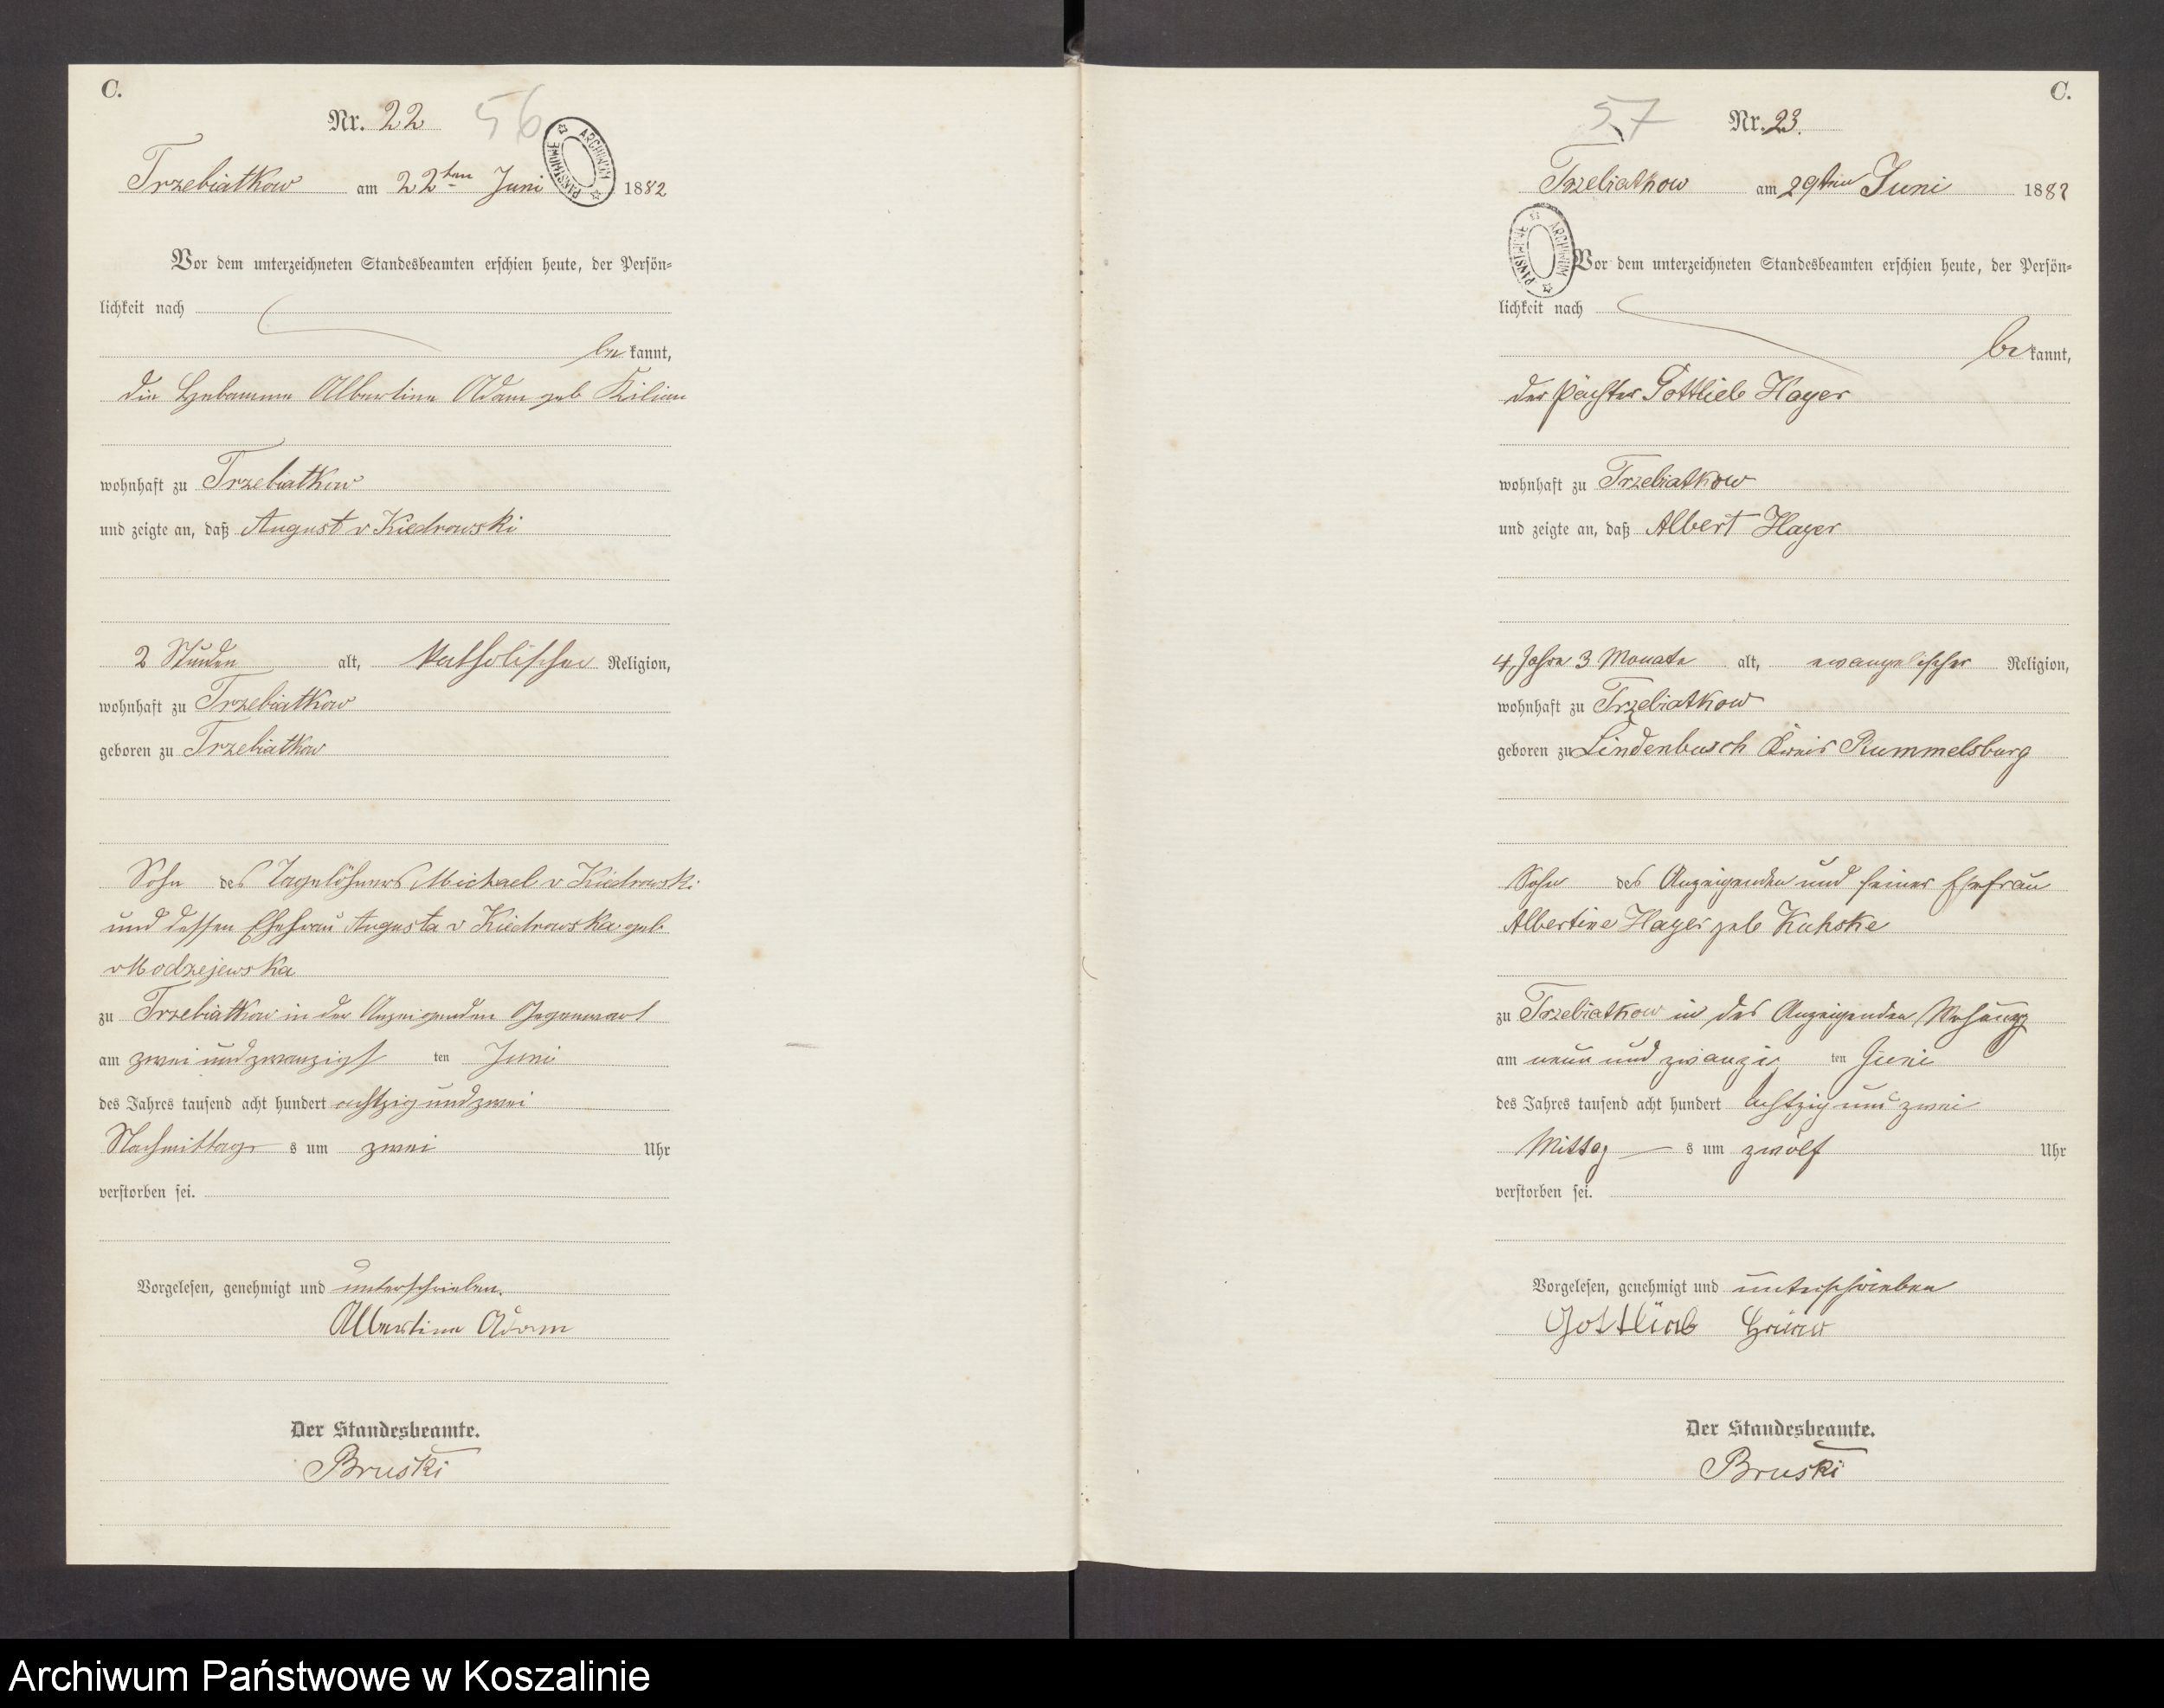 C.
Nr. 22 56
ARCHIWUM PAŃSTWOWE
Trzebiatkow am 22ten Juni 1882
Vor dem unterzeichneten Standesbeamten erschien heute, der Persön-
lichkeit nach
be kannt,
die Hebamme Albertine Adam geb Kilian
wohnhaft zu Trzebiatkow
und zeigte an, daß August v Kiedrowski
2 Stunden alt, katholischer Religion,
wohnhaft zu Trzebiatkow
geboren zu Trzebiatkow
Sohn des Tagelöhners Michael v Kiedrowski
und dessen Ehefrau Augusta v Kiedrowska geb.
v Modzejewska
zu Trzebiatkow in der Anzeigenden Gegenwart
am zwei und zwanzigst ten Juni
des Jahres tausend acht hundert achtzig und zwei
Nachmittag s um zwei Uhr
verstorben sei.
Vorgelesen, genehmigt und unterschrieben.
Albertine Adam
Der Standesbeamte.
Bruski
C.
57 Nr. 23.
Trzebiatkow am 29ten Juni 1882
ARCHIWUM PAŃSTWOWE
Vor dem unterzeichneten Standesbeamten erschien heute, der Persön-
lichkeit nach
be kannt,
der Pächter Gottlieb Hayer
wohnhaft zu Trzebiatkow
und zeigte an, daß Albert Hayer
4 Jahre 3 Monate alt, evangelischer Religion,
wohnhaft zu Trzebiatkow
geboren zu Lindenbusch Kreis Rummelsburg
Sohn des Anzeigenden und seiner Ehefrau
Albertine Hayer geb Kuhske
zu Trzebiatkow in des Anzeigenden Wohnung
am neun und zwanzig ten Juni
des Jahres tausend acht hundert achtzig und zwei
Mittag s um zwölf Uhr
verstorben sei.
Vorgelesen, genehmigt und unterschrieben
Gottlieb
Der Standesbeamte.
Bruski
Archiwum Państwowe w Koszalinie